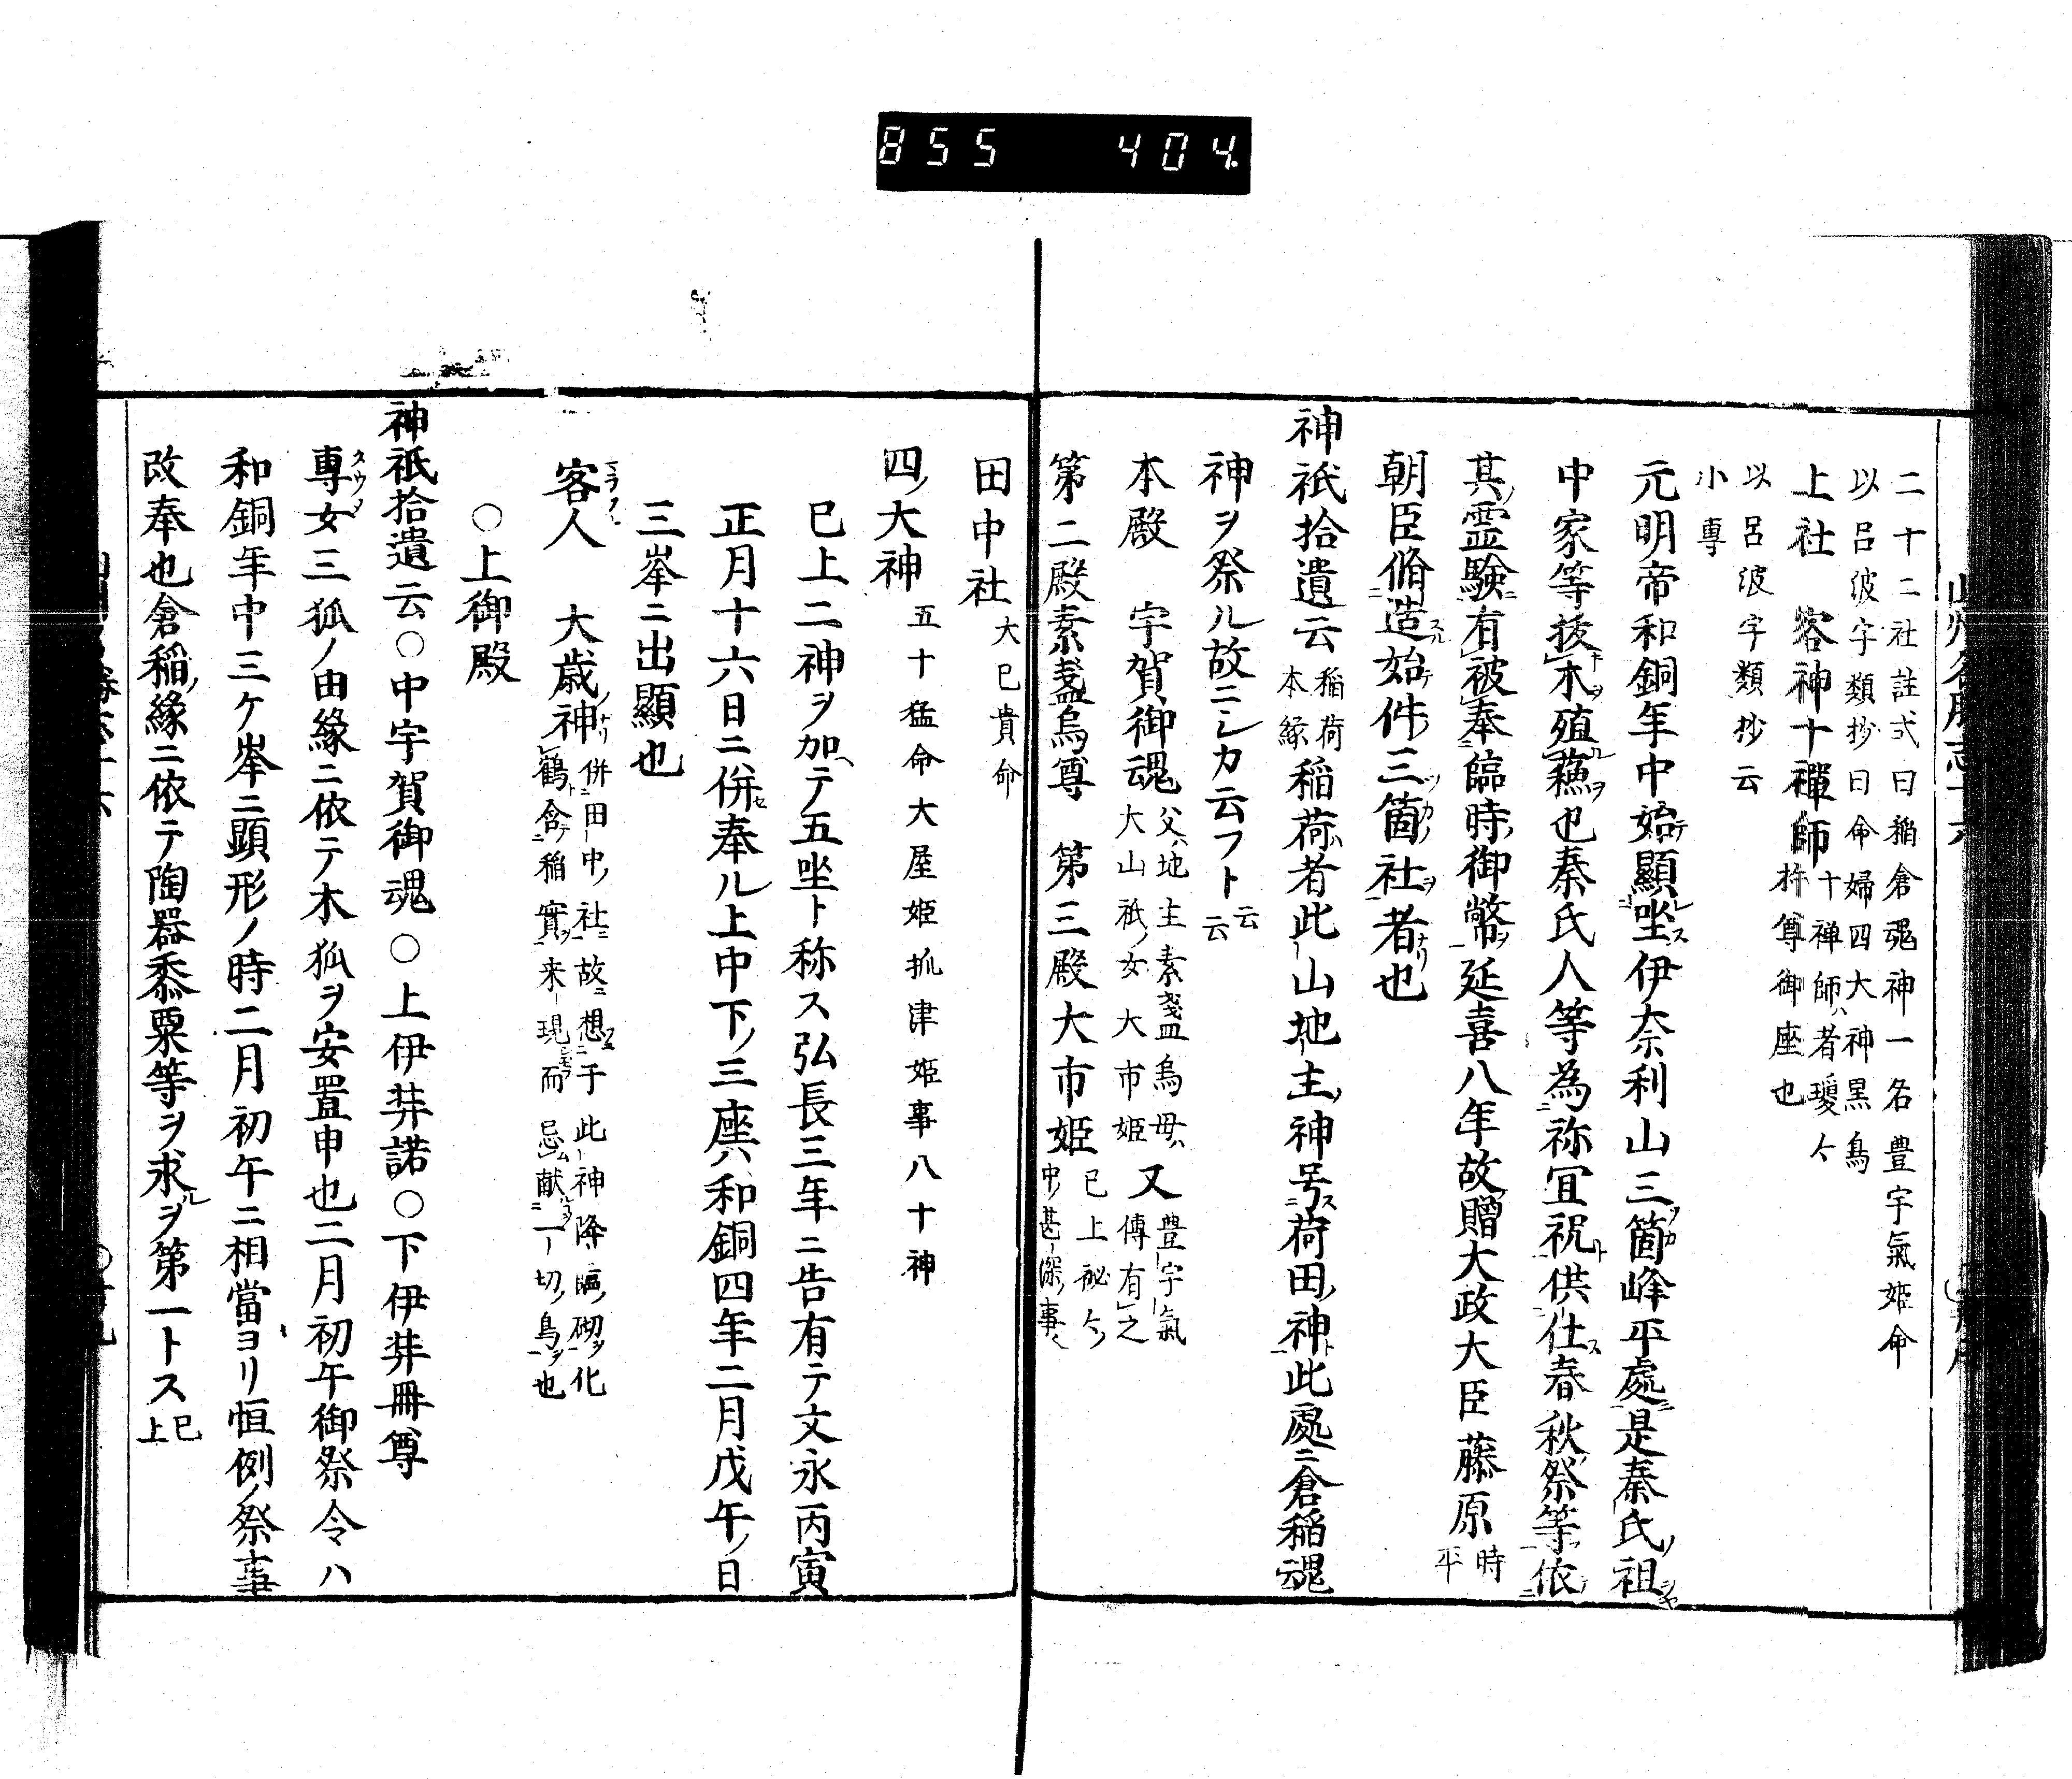 855 404
二十二社註式曰稲倉魂神一名豊宇氣姫命
以呂波字類抄曰命婦四大神黒烏
上社 客神十禪師 十禅師ハ者瓊々
杵尊御座也
以呂波字類抄云
小専
元明帝和銅年中始テ顯坐ス伊奈利山三箇峰平處ニ是秦氏ノ祖
中家等抜木殖蘓也秦氏人等為祢宜祝供仕ス春秋ノ祭等依
其ノ霊驗有被奉臨時ノ御幣ヲ延喜八年故贈大政大臣藤原 時
平
朝臣脩造始テ件ノ三箇社ヲ者也
神祇拾遺云 稲荷
本縁 稲荷者此山地主ノ神号ス荷田ノ神ト此處ニ倉稲魂
神ヲ祭ル故ニシカ云フト 云
云
本殿 宇賀御魂 父ハ地主素盞烏母ハ
大山祇ノ女大市姫 又 豊宇氣
傳有之
第二殿素盞烏尊 第三殿大市姫 已上秘々
中ノ甚深ノ事
田中社 大已貴命
四ノ大神 五十猛命大屋姫抓津姫事八十神
已上二神ヲ加ヘテ五坐ト称ス弘長三年ニ告有テ文永丙寅
正月十六日ニ併セ奉ル上中下ノ三座ハ和銅四年二月戊午ノ日
三峯ニ出顯也
客人 大歳神 併田中ノ社ニ故ニ想于此神降臨ノ砌ヲ化
鶴ト含テ稲實ヲ来現而忌献一切ノ鳥ヲ也
○上御殿
神祇拾遺云○中宇賀御魂○上伊弉諾○下伊弉冊尊
專女三狐ノ由縁ニ依テ木狐ヲ安置申也二月初午御祭令ハ
和銅年中三ケ峯ニ顕形ノ時二月初午ニ相當ヨリ恒例ノ祭事
改奉也倉稲ノ縁ニ依テ陶器黍粟等ヲ求ルヲ第一トス 已
上